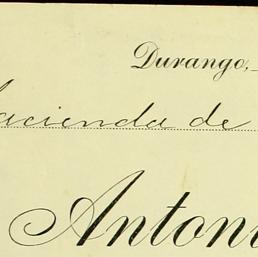 Durango,
acienda de
Antoni